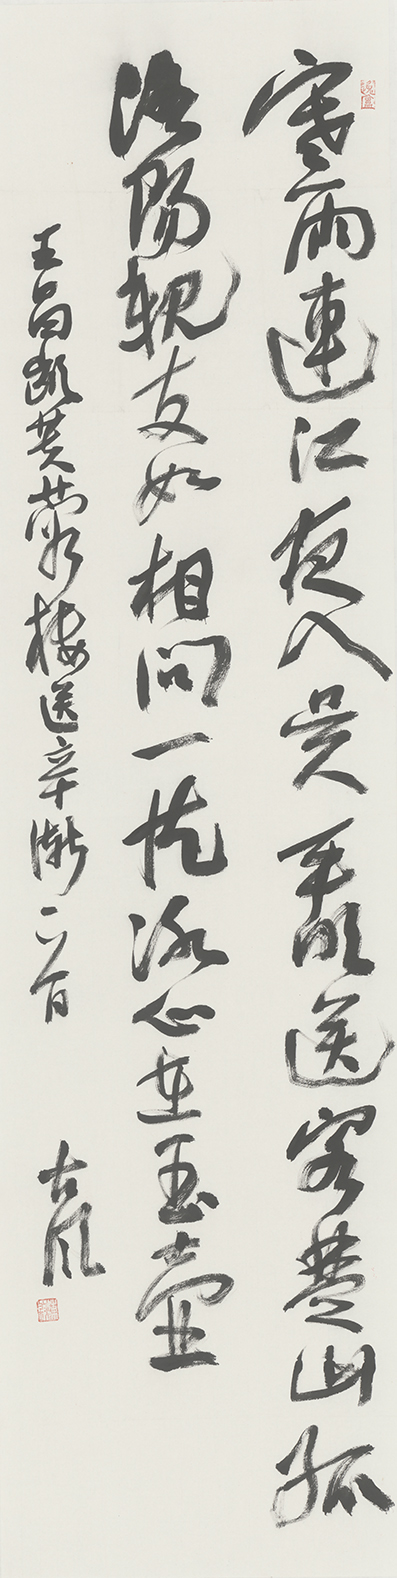 寒雨連江夜入吴平明送客楚山孤
洛陽親友如相問一片冰心在玉壺
王昌齡芙蓉樓送辛漸一首
古風